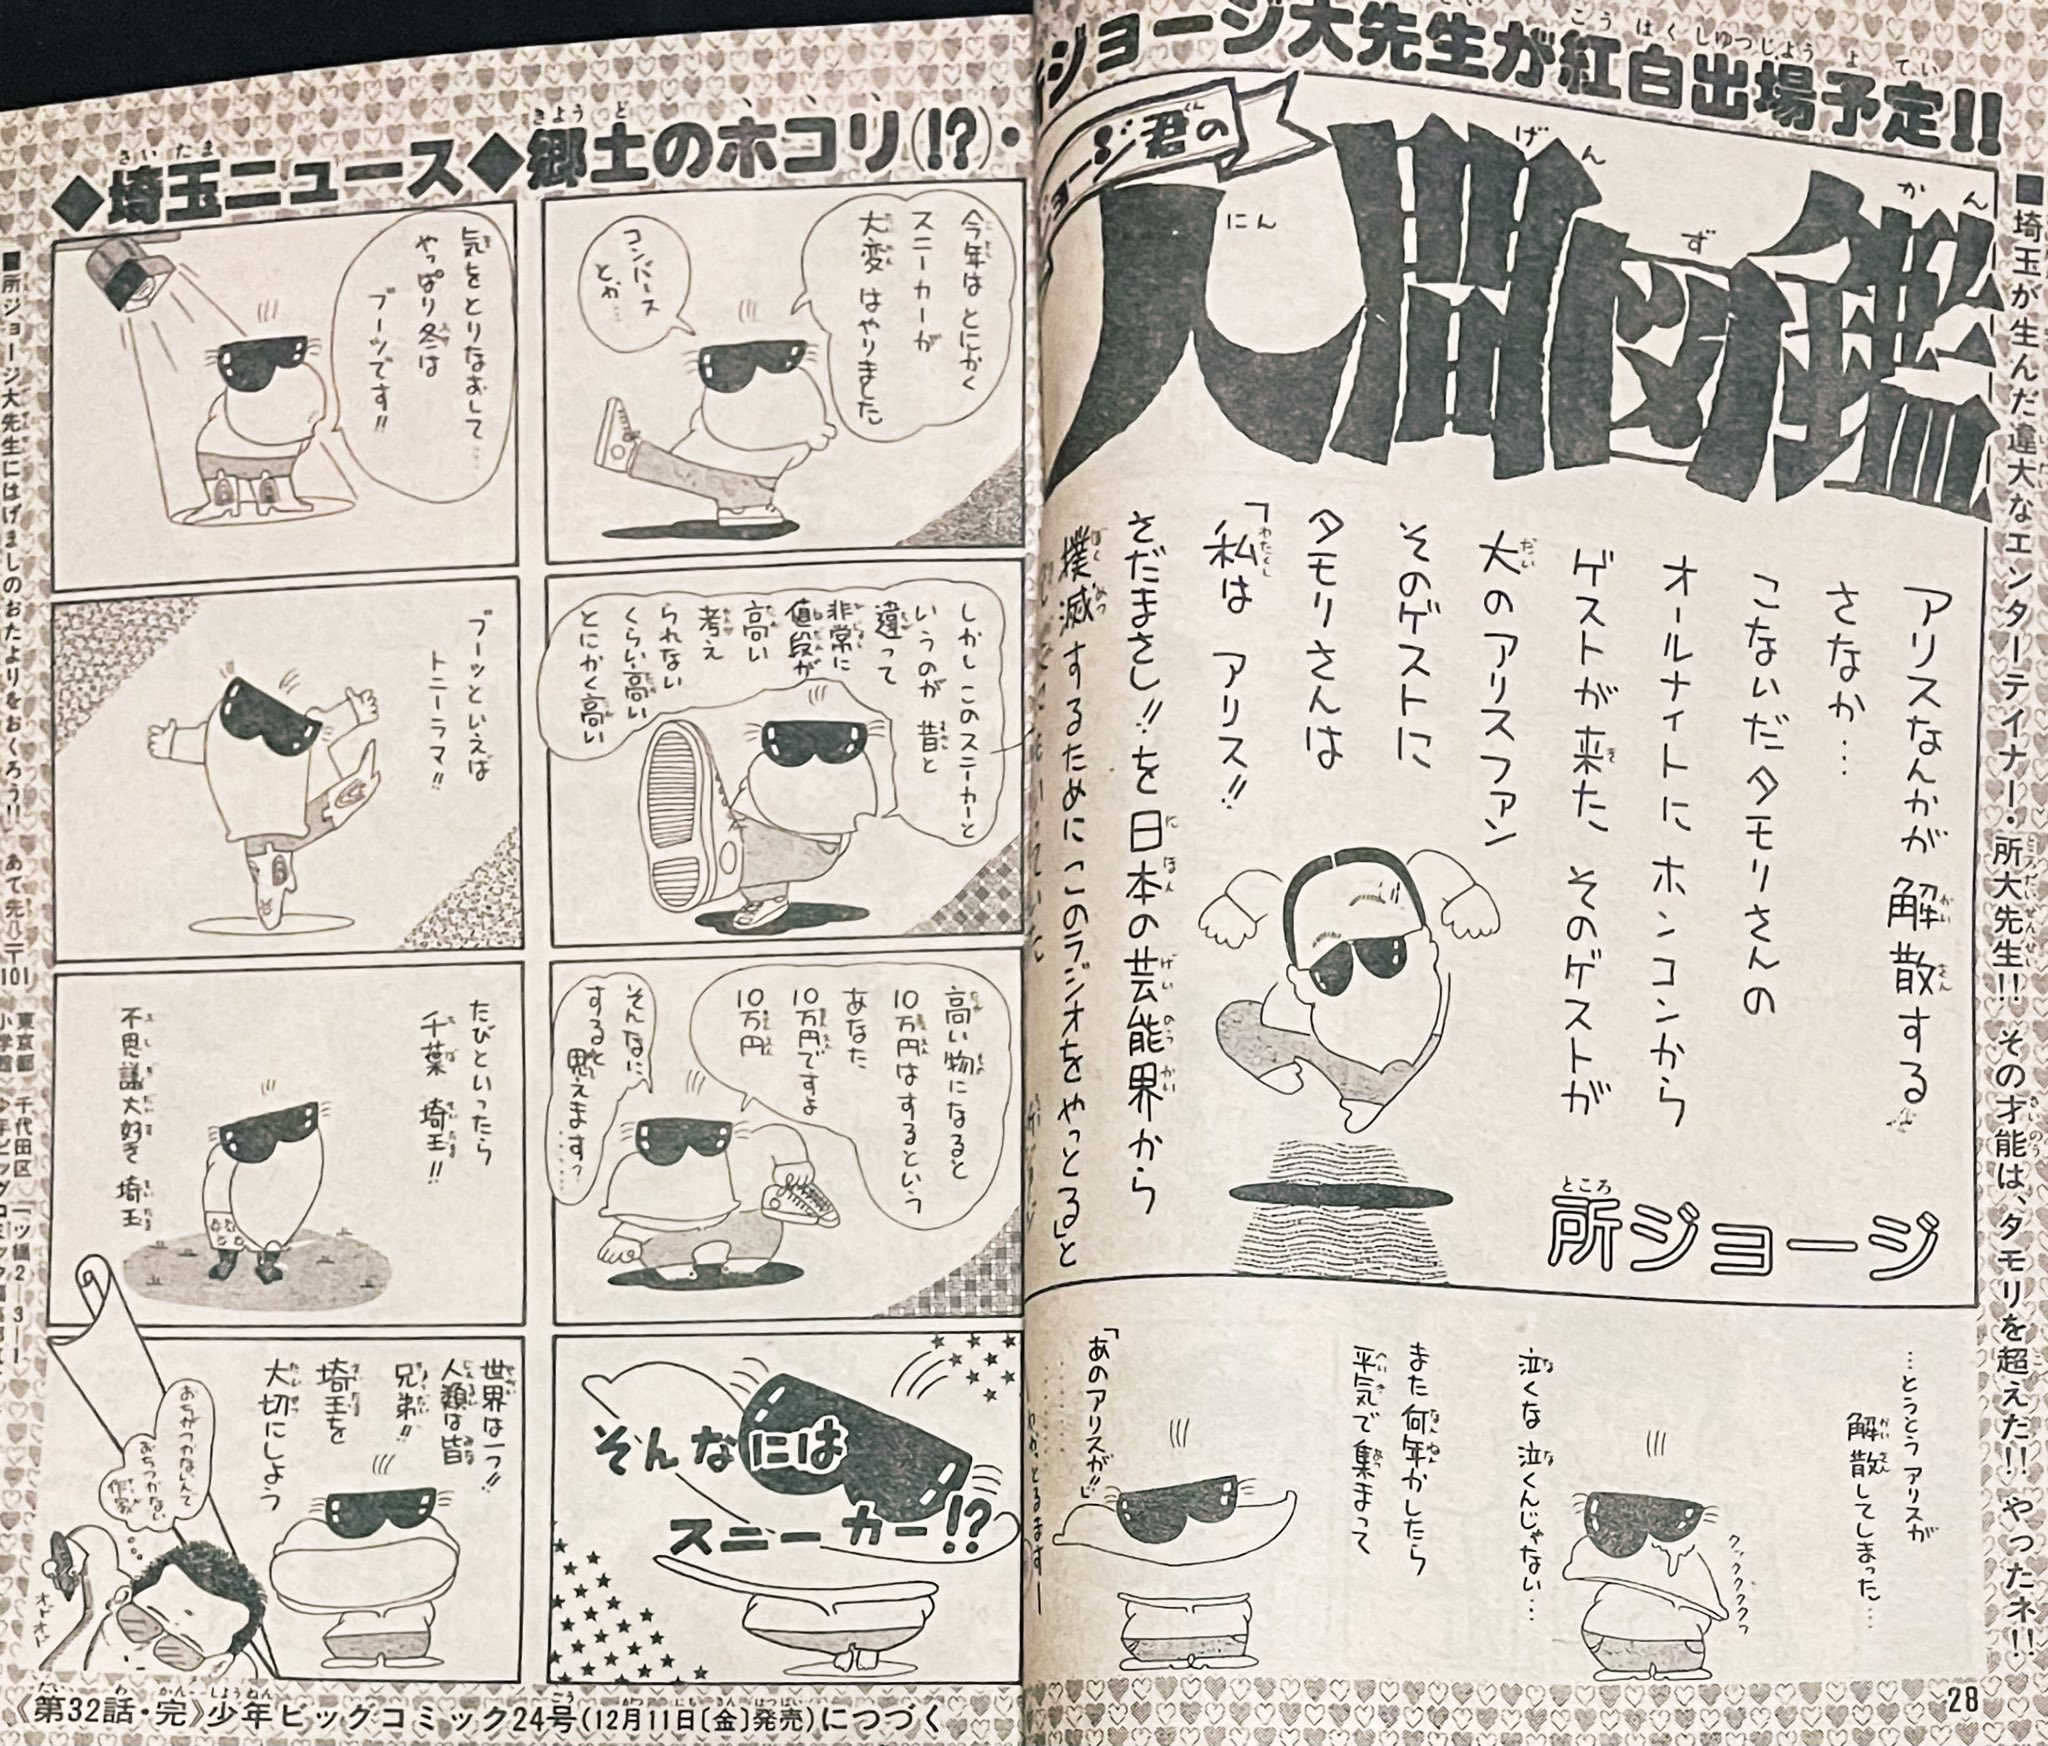 ジョージ大先生が紅白出場予定!!
■埼玉が生んだ違大なエンターテイナー・所大先生!! その才能は、タモリを超えた!! やったネ!!
ージ君の
人間図鑑
アリスなんかが解散する
さなか…
こないだタモリさんの
オールナイトにホンコンから
ゲストが来た そのゲストが
大のアリスファン
そのゲストに
タモリさんは
「私は アリス!!
さだまさし!!を日本の芸能界から
撲滅するためにこのラジオをやっとる」と
所ジョージ
…とうとうアリスが
解散してしまった…
クックククク
泣くな 泣くんじゃない…
また何年かしたら
平気で集まって
「あのアリスが!!」
28
◆埼玉ニュース◆郷土のホコリ(!?)・
今年は とにかく
スニーカーが
大変 はやりました
コンバース
とか…
しかしこのスニーカーと
いうのが 昔と
違って
非常に
値段が
高い
考え
られない
くらい高い
とにかく高い
高い物になると
10万円はするという
あなた
10万円ですよ
10万円
そんなに
すると思えます?……
そんなには
スニーカー!?
気をとりなおして…
やっぱり冬は
ブーツです!!
ブーツといえば
トニーラマ!!
たびといったら
千葉 埼玉!!
不思議大好き 埼玉
世界は一つ!!
人類は皆
兄弟!!
埼玉を
大切にしよう
おちがつかないんで
おちつかない
作家
オドオド
■所ジョージ大先生にはげましのおたよりをおくろう!! あて先⇨〒101 東京都千代田区一ツ橋2-3-1
《第32話・完》少年ビッグコミック24号(12月11日〔金〕発売)につづく